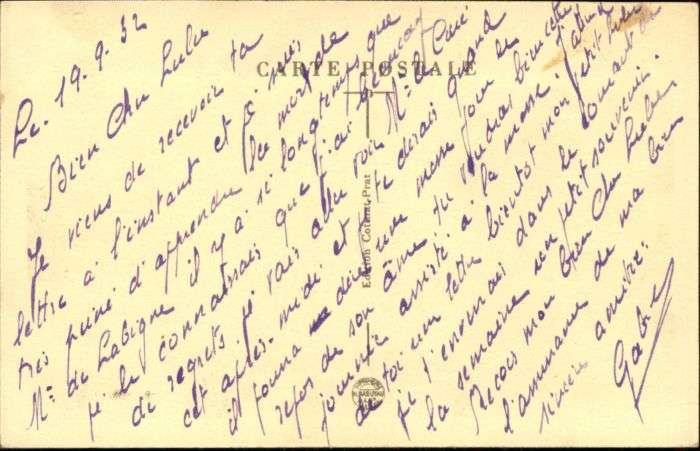 CARTE POSTALE
Edition Colonial-Prat
Le. 19.9.32
Bien Cher Lulu
Je viens de recevoir ta
lettre à l'instant et je suis
très peiné d'apprendre la mort de
Mr de Labigne il y a si longtemps que
je le connaissais que j'ai beaucoup
de regrets je vais aller voir Mr le Curé
cet après-midi et te dirais quand
il pourra dire une messe pour le
repos de son âme tu voudras bien cette
journée assisté à la messe. J'attend
de toi une lettre bientôt mon petit Lulu
je t'enverrais dans le courant de
la semaine un petit souvenir.
Recois mon bien Cher Lulu
l'assurance de ma bien
sincère amitié.
Gabriel